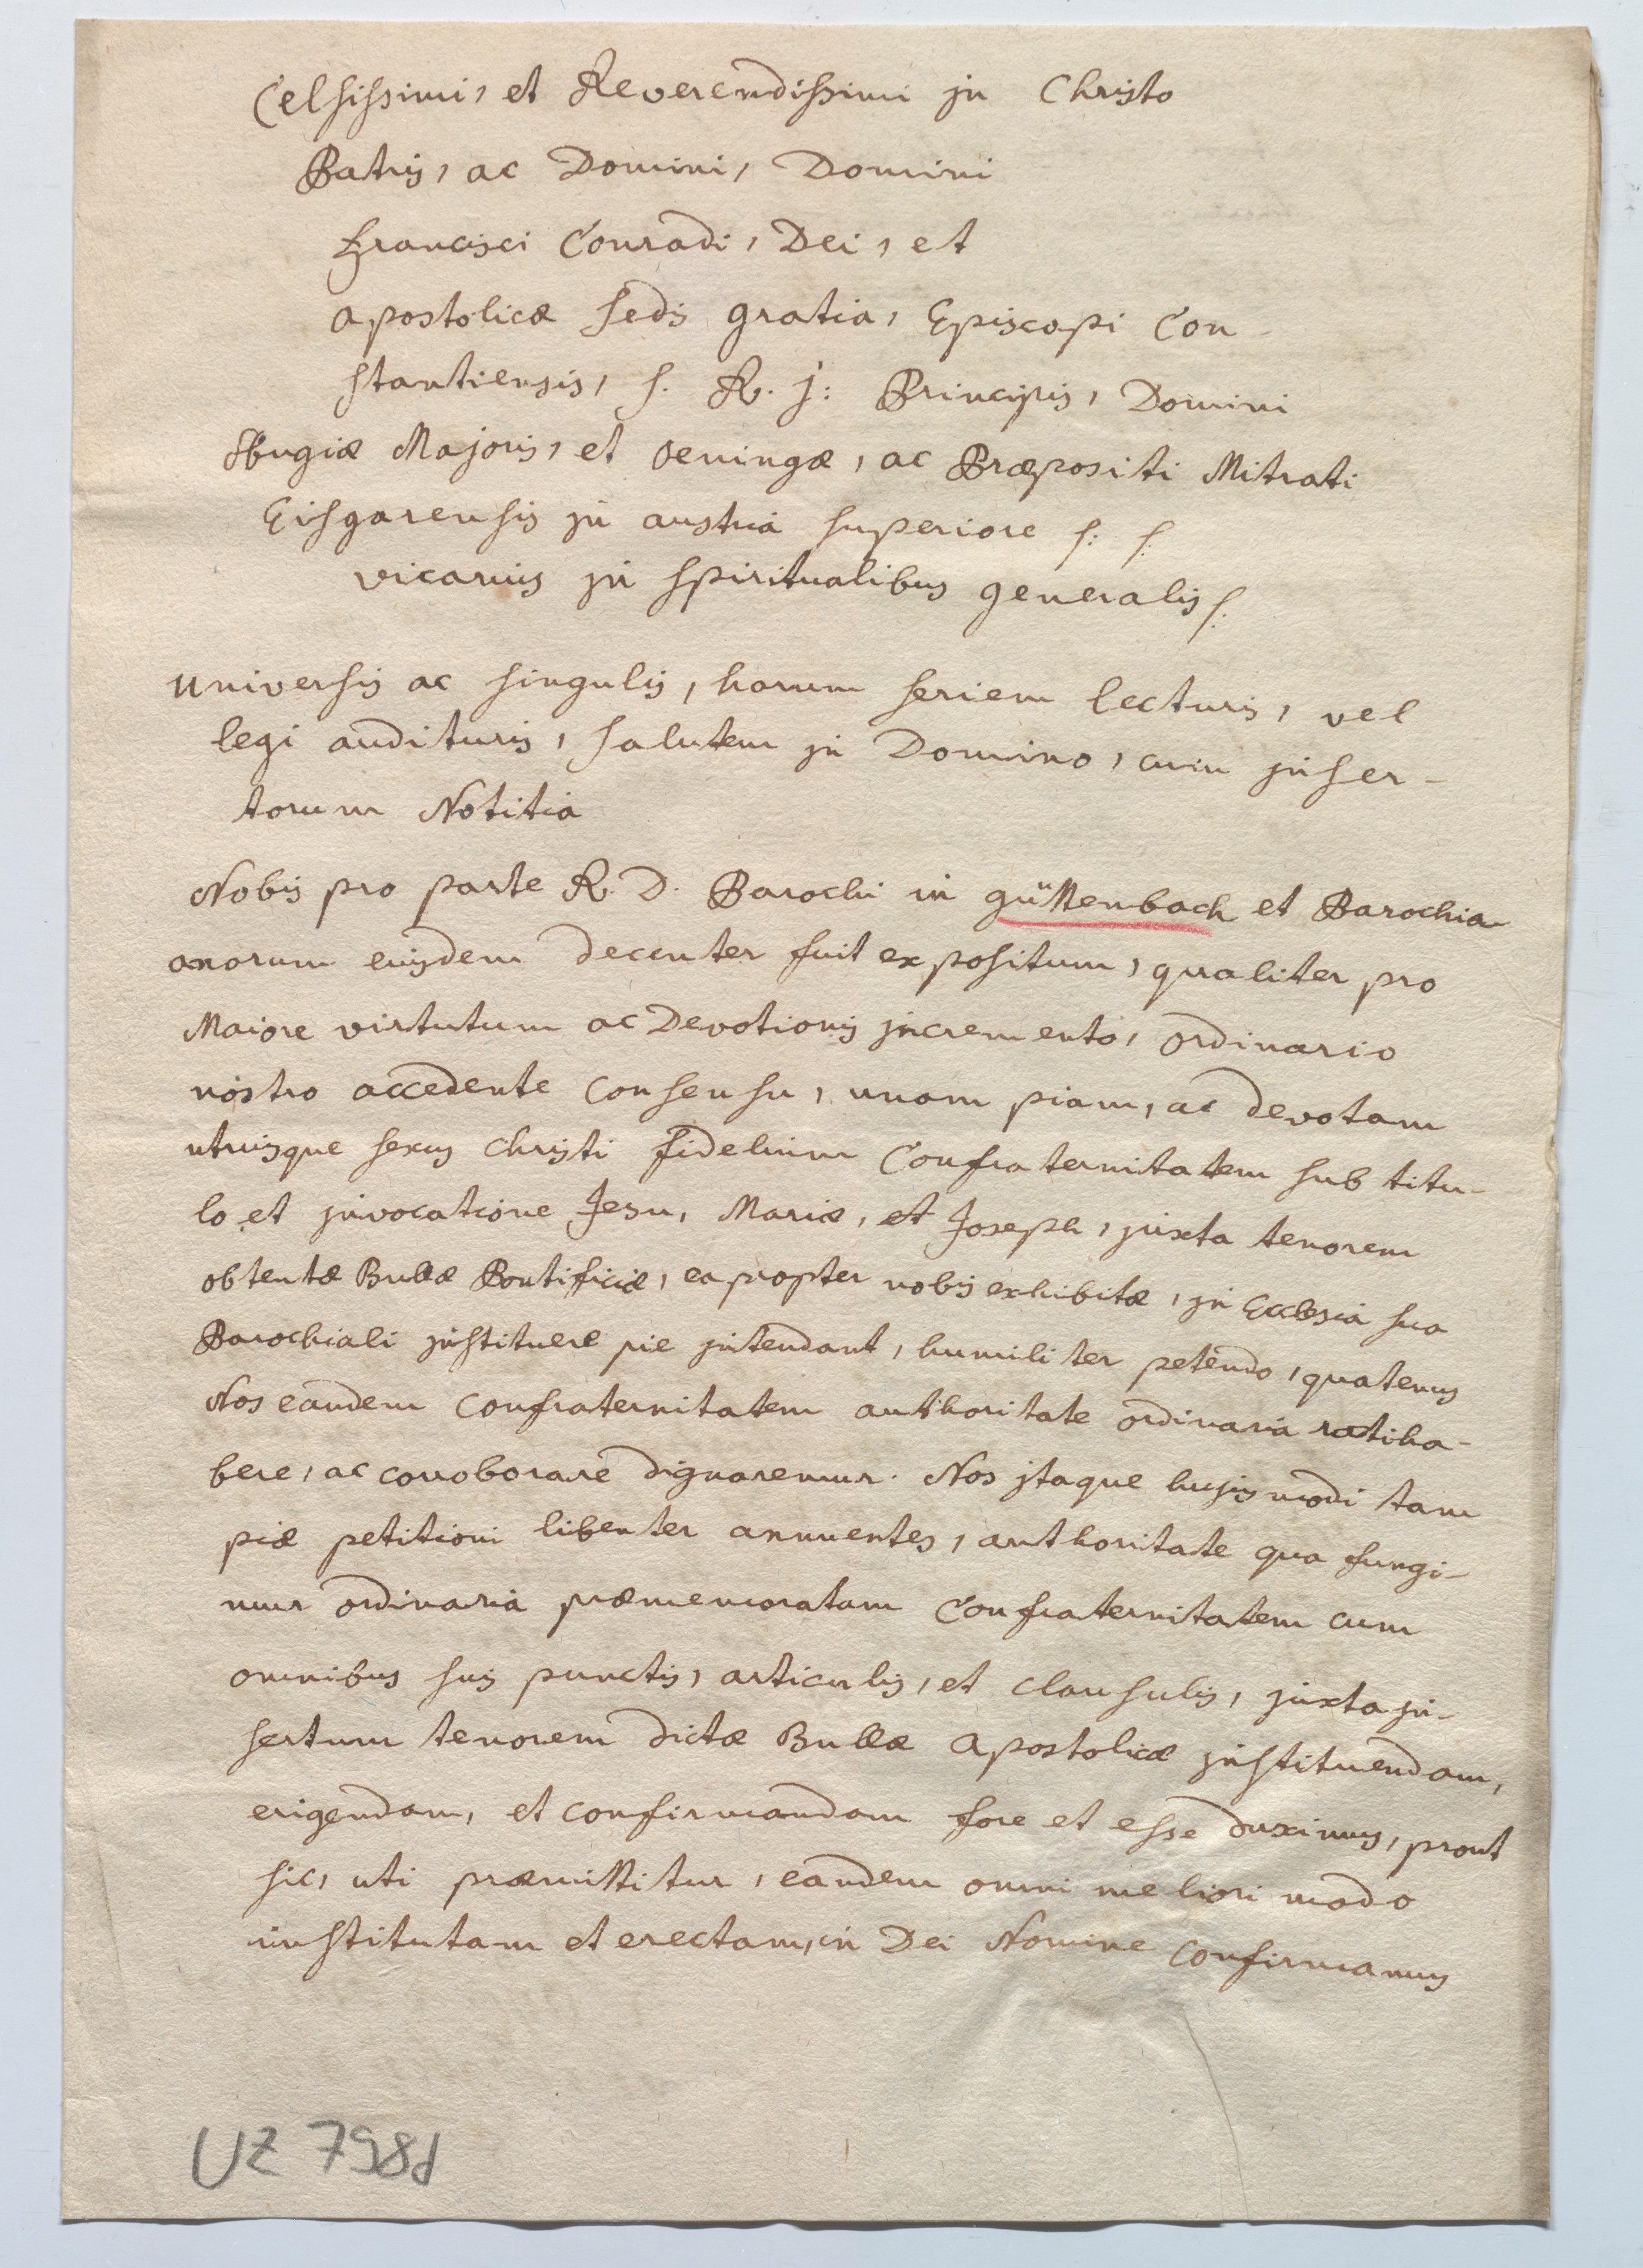 Celsissimi, et Reverendissimi jn Christo
Patris, ac Domini, Domini
Francisci Conradi, Dei, et
Apostolicæ Sedis gratia, Episcopi Con-
stantiensis, S. R. J: Principis, Domini
Augiæ Majoris, et Oeningæ, ac Præpositi Mitrati
Eisgarensis jn austria superiore
vicarius jn spiritualibus generalis
Universis ac singulis, harum seriem lecturis, vel
legi audituris, salutem jn Domino, cum jnser-
torum Notitia
Nobis pro parte R. D. Parochi in güttenbach et Parochia-
anorum eiusdem decenter fuit expositum, qualiter pro
Maiore virtutum ac Devotionis jncremento, ordinario
nostro accedente consensu, unam piam, ac devotam
utriusque sexus Christi fidelium Confraternitatem sub titu-
lo et jnvocatione Jesu, Mariæ, et Joseph, juxta tenorem
obtentæ Bullæ Pontificiæ, ea propter nobis exhibitæ, jn Ecclesia sua
Parochiali jnstituere pie jntendant, humiliter petendo, quatenus
Nos eandem confraternitatem authoritate ordinaria ratiha-
bere, ac corroborare dignaremur. Nos jtaque hujusmodi tam
piæ petitioni libenter annuentes, authoritate qua fungi-
mur ordinaria præmemoratam Confraternitatem cum
omnibus suis punctis, articulis, et clausulis, juxta jn-
sertum tenorem dictæ Bullæ Apostolicæ jnstituendam,
erigendam, et confirmandam fore et esse duximus, prout
sic, uti præmittitur, eandem omni meliori modo
institutam et erectam, in Dei Nomine confirmamus
UZ 798d